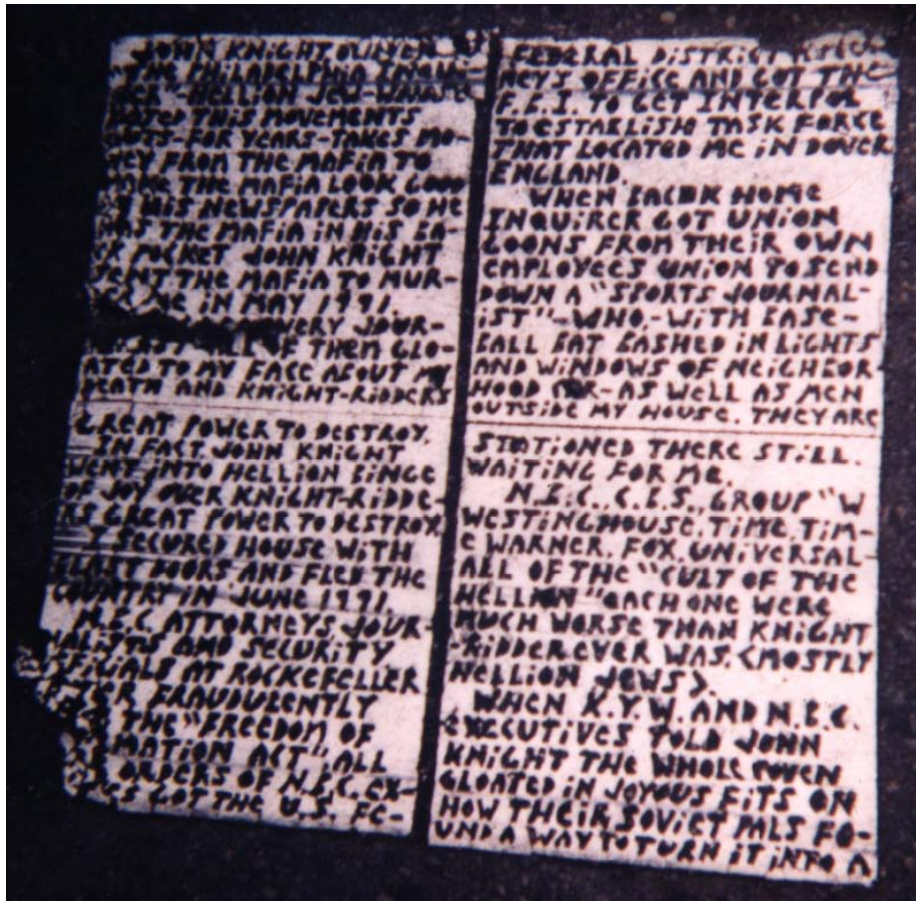 JOHN KNIGHT OWNER
"THE PHILADELPHIA INQUI-
HELLION JEW
THIS MOVEMENTS
FOR YEARS-TAKES MO-
NEY FROM THE MAFIA TO
THE MAFIA LOOK GOOD
HIS NEWSPAPERS SO HE
HAS THE MAFIA IN HIS BA-
CK POCKET JOHN KNIGHT
SENT THE MAFIA TO MUR-
ME IN MAY 1991.
JOUR-
OF THEM GLO-
ATED TO MY FACE ABOUT MY
DEATH AND KNIGHT-RIDDERS
GREAT POWER TO DESTROY.
IN FACT JOHN KNIGHT
WENT INTO HELLION BINGE
OF JOY OVER KNIGHT-RIDDE-
RS GREAT POWER TO DESTROY
I SECURED HOUSE WITH
BLAST DOORS AND FLED THE
COUNTRY IN JUNE 1991.
N.B.C. ATTORNEYS, JOUR-
AND SECURITY
OFFICIALS AT ROCKEFELLER
FRAUDULENTLY
THE "FREEDOM OF
MATION ACT" ALL
ORDERS OF N.B.C. EX-
GOT THE U.S. FE-
FEDERAL DISTRICT
NEYS OFFICE AND GOT THE
F.B.I. TO GET INTERPOL
TO ESTABLISH TASK FORCE
THAT LOCATED ME IN DOVER
ENGLAND.
WHEN BACK HOME
INQUIRER GOT UNION
GOONS FROM THEIR OWN
EMPLOYEES UNION TO SEND
DOWN A "SPORTS JOURNAL-
IST"-WHO,-WITH BASE-
BALL BAT BASHED IN LIGHTS
AND WINDOWS OF NEIGHBOR-
HOOD CAR-AS WELL AS MEN
OUTSIDE MY HOUSE. THEY ARE
STATIONED THERE STILL.
WAITING FOR ME.
N.B.C., C.B.S., GROUP "W
WESTINGHOUSE, TIME, TIM-
E WARNER, FOX, UNIVERSAL
ALL OF THE "CULT OF THE
HELLION" EACH ONE WERE
MUCH WORSE THAN KNIGHT
RIDDER EVER WAS. <MOSTLY
HELLION JEWS>.
WHEN K.Y.W. AND N.B.C.
EXECUTIVES TOLD JOHN
KNIGHT THE WHOLE COVEN
GLOATED IN JOYOUS FITS ON
HOW THEIR SOVIET PALS FO-
UND A WAY TO TURN IT INTO A